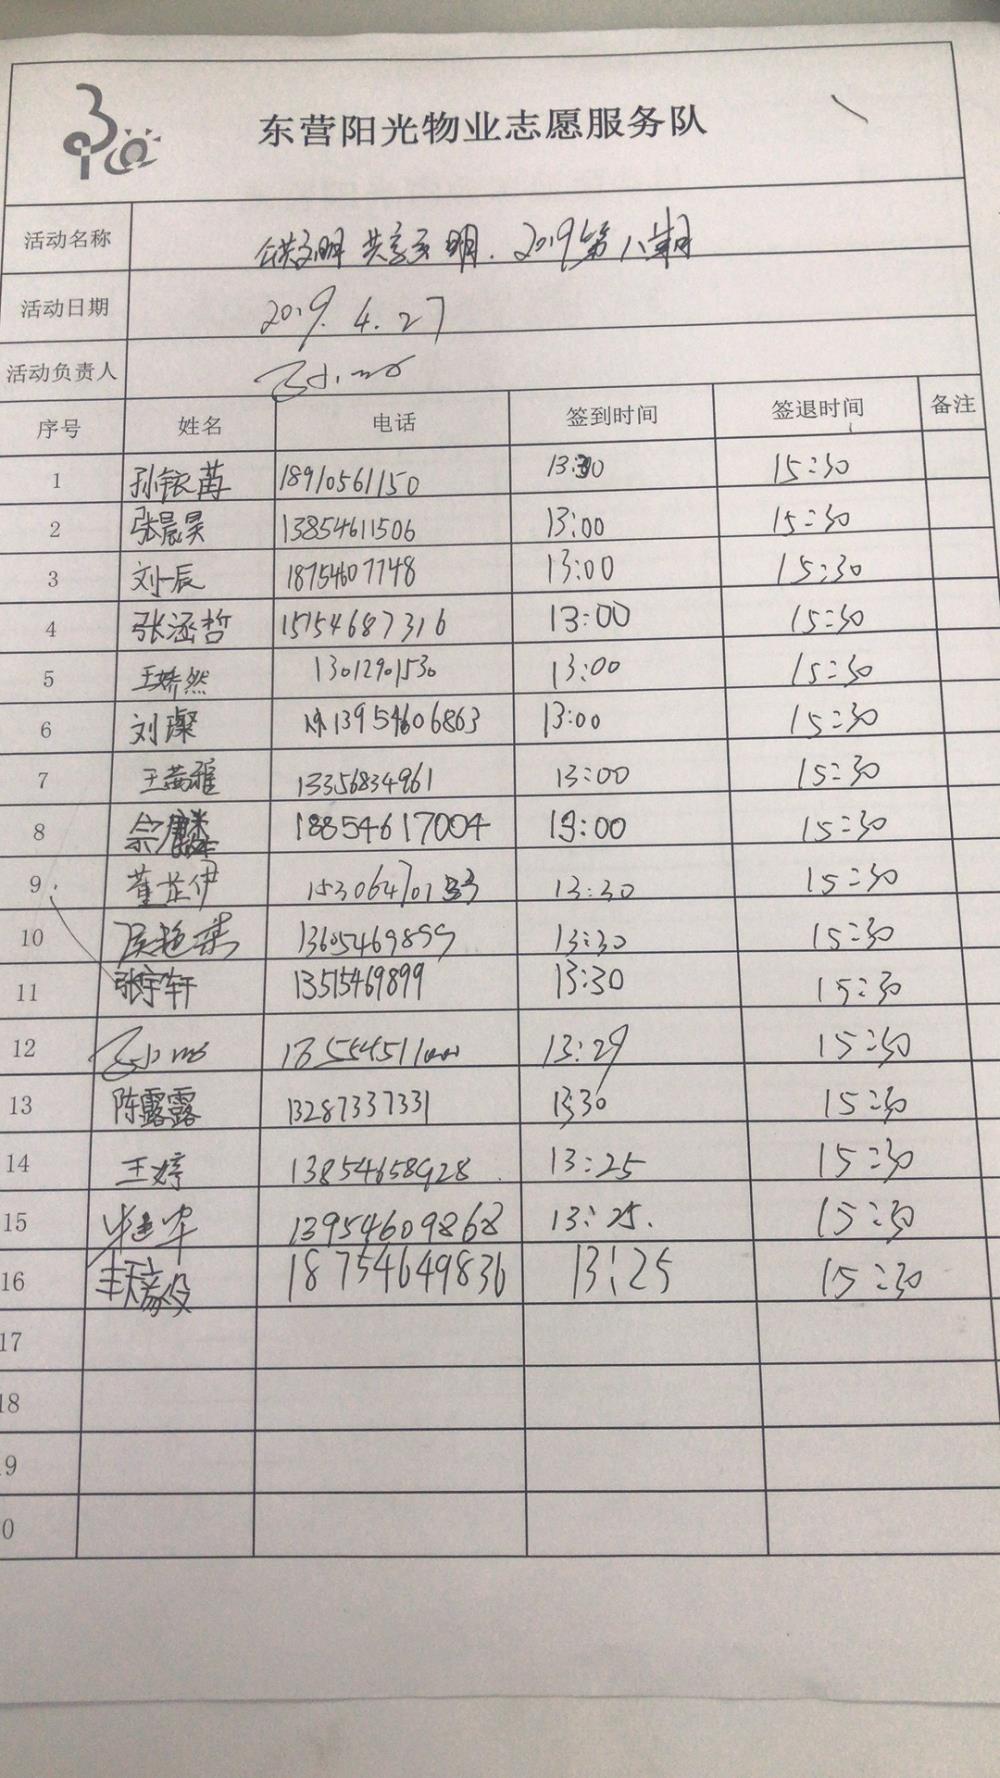 东营阳光物业志愿服务队
活动名称 共享文明. 2019第八期
活动日期 2019. 4. 27
活动负责人
序号 姓名 电话 签到时间 签退时间 备注
1 孙铱苒 18910561150 13:30 15:30
2 张晨昊 13854611506 13:00 15:30
3 刘一辰 18754607748 13:00 15:30
4 张涵哲 15754687316 13:00 15:30
5 王娇然 13012901530 13:00 15:30
6 刘璨 13954606863 13:00 15:30
7 王茜雅 13356834961 13:00 15:30
8 宗麟 18854617004 13:00 15:30
9 董芷伊 15306470133 13:30 15:30
10 13605469899 13:30 15:30
11 张宇轩 13515469899 13:30 15:30
12 13:29 15:30
13 陈露露 13287337331 13:30 15:30
14 王婷 13854658928 13:25 15:30
15 13954609868 13:25. 15:30
16 18754649836 13:25 15:30
17
18
9
0